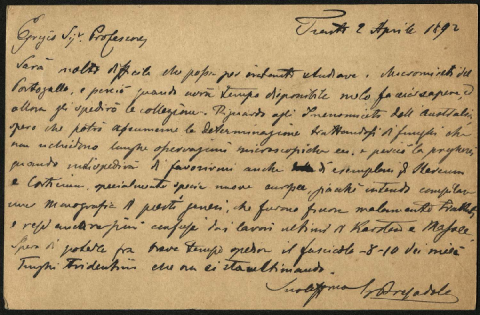 Trento 2 Aprile 1892
Egregio Sigr. Professore,
Sarà molto difficile che possa per intanto studiare i Micromiceti del
Portogallo, e perciò quando avrà tempo disponibile me lo faccia sapere, ed
allora gli spedirò la collezione. Riguardo agli Imenomiceti dell'Australia,
spero che potrò assumerne la determinazione trattandosi di funghi che
non richiedono lunghe osservazioni microscopiche ecc. e perciò la pregherei
quando mi spedirà di favorirmi anche esemplari di
e Corticium, specialmente specie nuove europee, giacché intendo compilare
una Monografia di questi generi, che furono finora malamente trattati,
e resi ancora più confusi dai lavori ultimi di Karsten e Massee.
Spero di poterle fra breve tempo spedire il fascicolo 8-10 dei miei
Funghi Tridentini che ora si sta ultimando.
Suo Bresadola